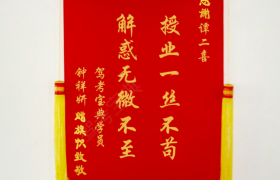 感谢谭二喜
授业一丝不苟
解惑无微不至
驾考宝典学员
钟祥妍 赠旗帜致敬